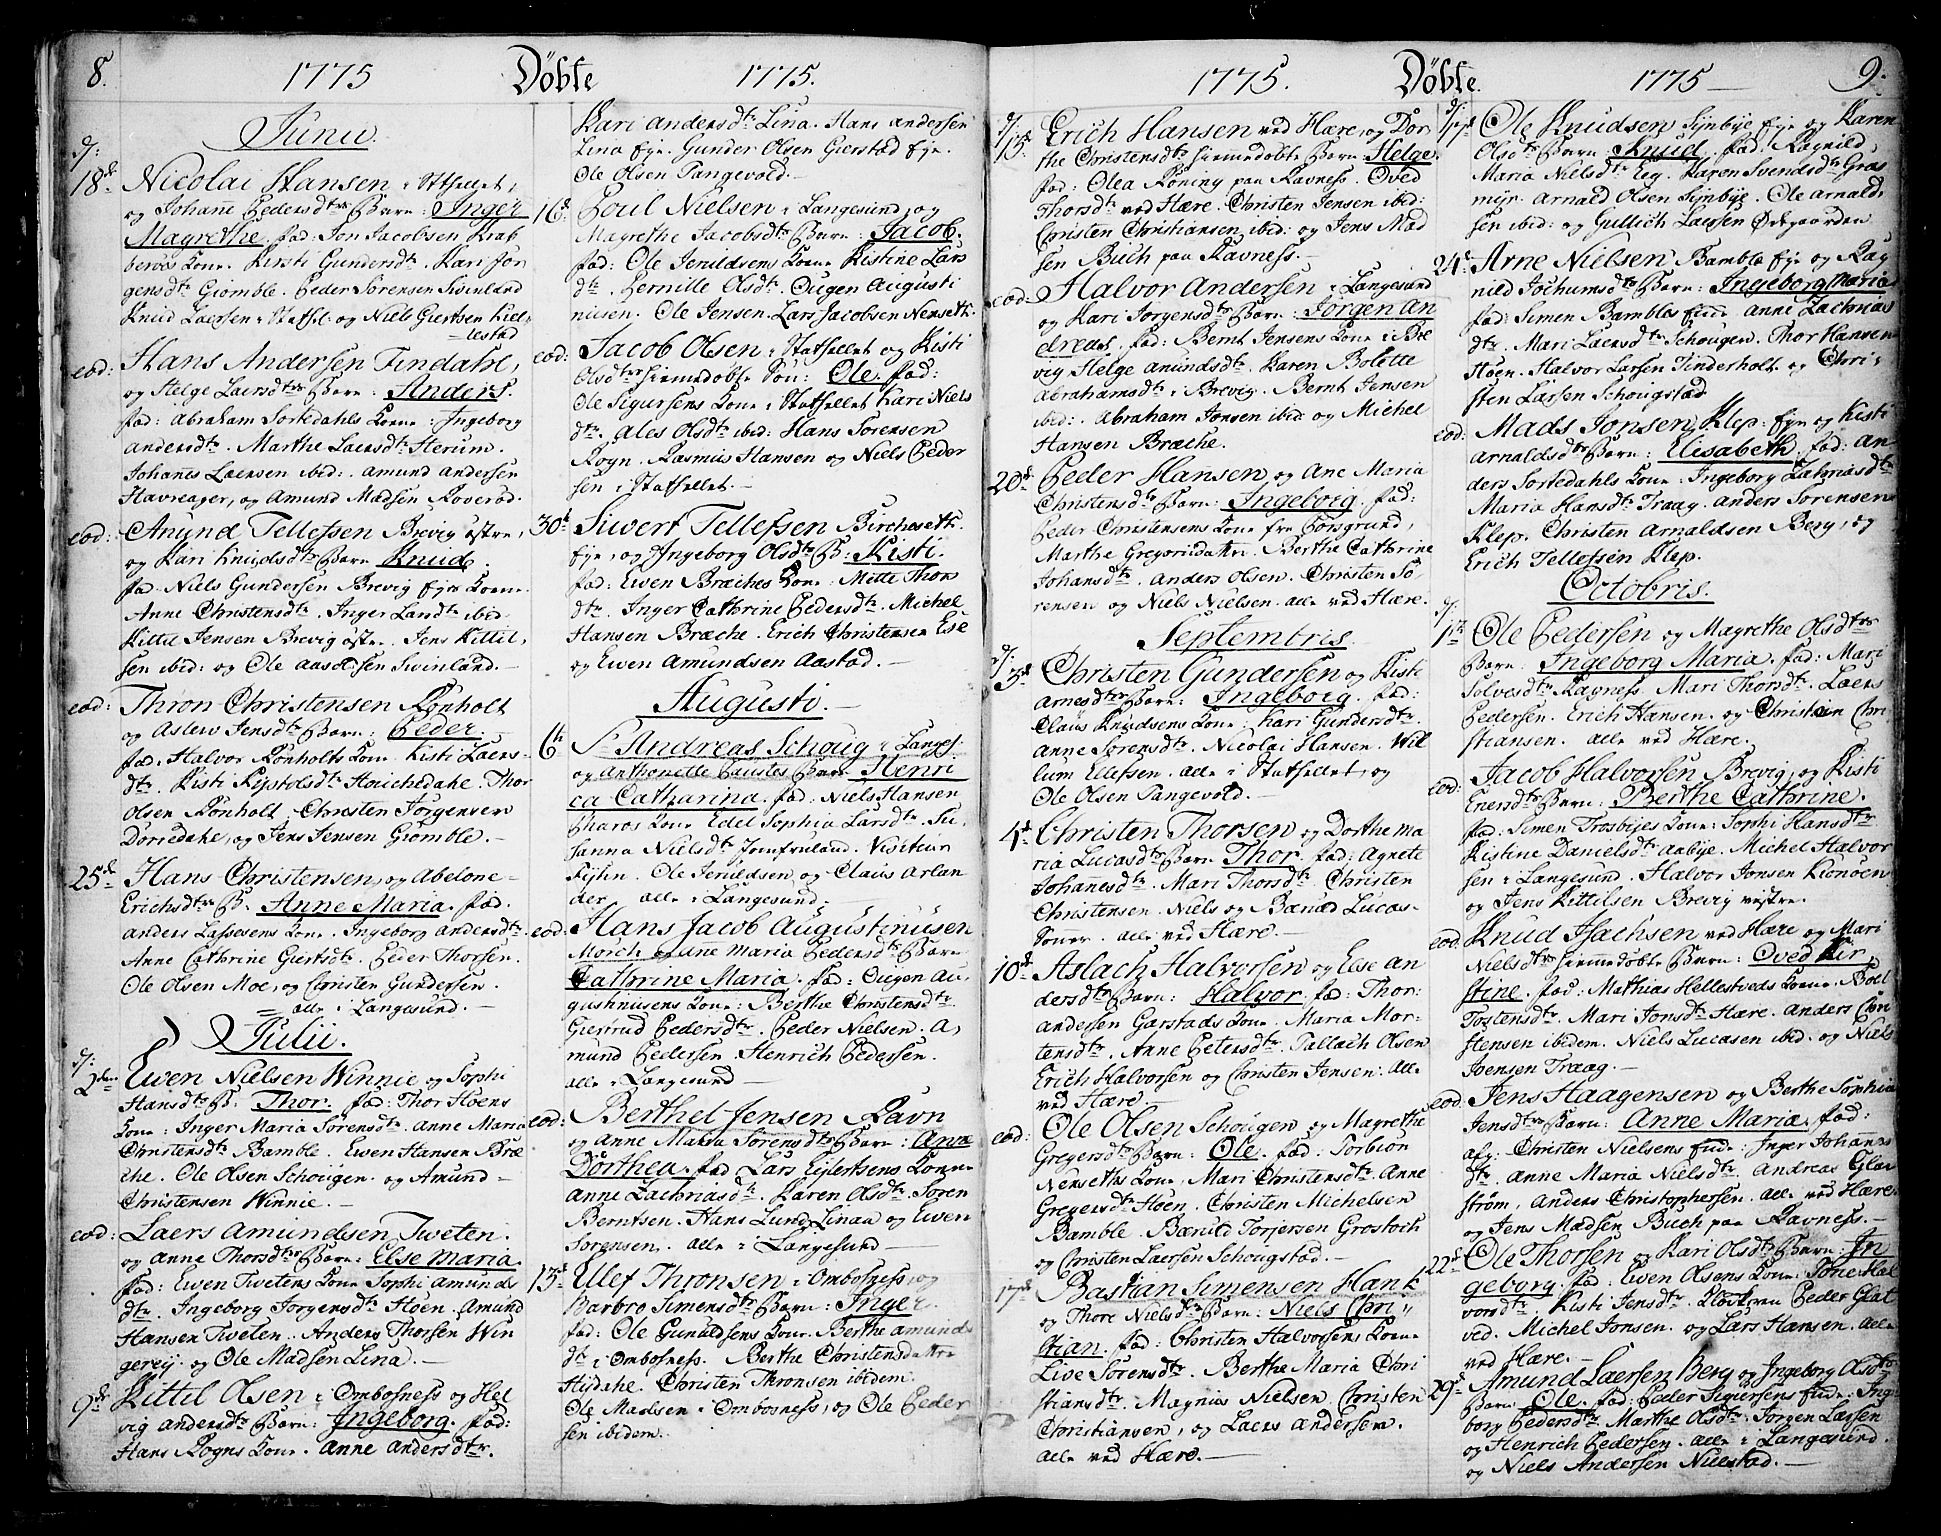 8. 1775 Döbte 1775.
Junii.
d:
18de Nicolai Hansen i Stathellet,
og Johanne Pedersdtr Barn: Inger
Magrethe. fad: Jon Jacobsen Krab
beröes Kone. Kirsti Gundersdtr. Kari Jör
gensdtr Giömble. Peder Sörensen Svinland
Knud Laersen i Stathel. og Niels Giertsen Kiel
lestad
eod: Hans Andersen Findahl,
og Helge Laersdtr Barn: Anders.
fad: Abraham Sortedahls Kone. Ingeborg
Andersdtr. Marthe Laersdtr Herum.
Johanes Laersen ibid: Amund Andersen
Havreager, og Amund Madsen Roveröd.
eod: Amund Tellefsen Brevig östre,
og Kari Knudsdtr Barn Knud.
fad. Niels Gundersen Brevig Eje Kone
Anne Christensdtr. Inger Landtr ibid.
Kittil Jensen Brevig östre. Jens Kittil,
sen ibid: og Ole Aasolsen Svinland.
eod: Thron Christensen Rönholt
og Aslew Jensdtr Barn: Peder.
fad. Halvor Rönholts Kone Kisti Laers-
dtr. Kisti Kistolsdtr Houchedahl. Thor
Olsen Rönholt, Christen Jörgensen
Dörredahl, og Jens Jensen Giömble.
25de Hans Christensen, og Abelone
Erichsdtr B. Anne Maria. fad.
Anders Lassesens Kone. Ingeborg Andersdtr.
Anne Cathrine Giertsdtr. Peder Thorsen.
Ole Olsen Moe, og Christen Gundersen.
alle i Langesund.
Julii.
d:
2den Ewen Nielsen Winnie og Sophi
Hansdtr B: Thor. fad: Thor Höens
Kone. Inger Maria Sörensdtr. Anne Maria
Christensdtr Bamble. Ewen Hansen Bræ
che. Ole Olsen Schougen. og Amund
Christensen Winnie.
eod: Laers Amundsen Tweten.
og Anne Thorsdtr Barn: Else Maria.
fad: Ewen Twetens Kone Sophi Amunds
dtr. Ingeborg Jörgensdtr Höen. Amund
Hansen Tweten. Anders Thorsen Win
gereij. og Ole Madsen Lina.
9de Kittil Olsen i Ombosness og Hel
vig Andersdtr Barn: Ingeborg. fad:
Hans Rogns Kone. Anne Andersdtr.
Kari Andersdtr Lina. Hans Andersen
Lina Eje. Gunder Olsen Gierstad Eje.
Ole Olsen Tangevold.
16de Poul Nielsen i Langesund, og
Magrethe Jacobsdtr Barn: Jacob.
fad: Ole Jerulsens Kone Kistine Lars
dtr. Pernille Olsdtr. Ougen Augusti
nusen. Ole Jensen. Lars Jacobsen Nenseth.
eod: Jacob Olsen i Stathellet og Kisti
Olsdtr hiemmedöbte Sön: Ole. fad:
Ole Sigursens Kone i Stathellet Kari Niels
dtr. Ales Olsdtr ibid: Hans Sörensen
Rogn. Rasmus Hansen og Niels Peder
sen i Stathellet.
30te Siwert Tellefsen Bircheseth.
Eje, og Ingeborg Olsdtr B: Kisti.
fad: Ewen Bræches Kone: Mette Thor
dtr. Inger Cathrine Pedersdtr. Michel
Hansen Bræche. Erich Christensen Ese
og Ewen Amundsen Aastad.
Augusti.
6te Sr Andreas Schoug i Langes.
og Anthonelle Faustes Barn Henri
ca Catharina. fad: Niels Hansen
Pharos Kone Edel Sophia Larsdtr. Su,
sanna Nielsdtr Jomfruland. Visiteur
Fejhn. Ole Jerulsen, og Claus Arlan
der. alle i Langesund.
eod: Hans Jacob Augustinusen
Mörch og Anne Maria Pedersdtr Barn
Cathrine Maria. fad: Ougen Au,
gustinusens Kone: Berthe Christensdtr
Giertrud Pedersdtr. Peder Nielsen. A,
mund Pedersen. Henrich Pedersen.
alle i Langesund
eod: Berthel Jensen Ravn
og Anne Maria Sörensdtr Barn: Anne
Dörthea. fad Lars Ejlertsens Kone
Anne Zachriasdtr. Karen Olsdtr. Sören
Berntsen. Hans Lund Linaa og Ewen
Sörensen. alle i Langesund
13de Ellef Thronsen i Ombosness, og
Barbro Simensdtr Barn: Inger.
fad: Ole Gunuldsens Kone Berthe Amunds
dtr i Ombosness. Berthe Christensdatter
Hisdahl. Christen Thronsen ibidem.
Ole Madsen i Ombosness, og Ole Peder
sen ibidem.
1775. Döbte. 1775 9.
d/15: Erich Hansen ved Hære, og Dor
the Christensdtr hiemmedöbte Barn: Helge.
fad: Olea Röning paa Ravness. Oved
Thorsdtr ved Hære. Christen Jensen ibid:
Christen Christiansen ibid: og Jens Mad
sen Buch paa Ravness.
eod: Halvor Andersen i Langesund
og Kari Jörgensdtr Barn: Jörgen An
dreas. fad: Bernt Jensens Kone i Bre
vig Helge Amundsdtr. Karen Bolette
Abrahamsdtr i Brevig. Bernt Jensen
ibid: Abraham Jonsen ibid og Michel
Hansen Bræche.
20de Peder Hansen og Ane Maria
Christensdtr Barn: Ingeborg. fad:
Peder Christensens Kone fra Porsgrund,
Marthe Gregoriidatter. Berthe Cathrine
Johansdtr. Anders Olsen. Christen Sö,
rensen og Niels Nielsen. alle ved Hære.
Septembris.
d: 3de Christen Gundersen og Kisti
Arnesdtr Barn: Ingeborg. fad:
Claus Knudsens Kone: Kari Gundersdtr.
Anne Sörensdtr. Nicolai Hansen. Wil
lum Ellefsen. alle i Stathellet, og
Ole Olsen Tangevold.
4de Christen Thorsen og Dorthe Ma
ria Lucasdtr Barn Thor. fad: Agnete
Johannesdtr. Mari Thorsdtr. Christen
Christensen. Niels og Bærúld Lucas
Sönner. alle ved Hære.
10de Aslach Halvorsen og Else An
dersdtr Barn: Halvor. fad: Thor
Andersen Garstads Kone. Maria Mor,
tensdtr. Anne Petersdtr. Tallach Olsen
Erich Halvorsen og Christen Jensen. alle
ved Hære.
eod: Ole Olsen Schougen og Magrethe
Gregersdtr Barn: Ole. fad: Torbiön
Nenseths Kone. Mari Christensdtr. Anne
Gregersdtr Höen. Christen Michelsen
Bamble. Bærúld Torjersen Grostoch
og Christen Laersen Schougstad.
17de Bastian Simensen Hank
og Thore Nielsdtr Barn: Niels Chri,
stian. fad: Christen Halvorsens Kone
Live Sörensdtr. Berthe Maria Chri
stiansdtr. Magnus Nielsen, Christen
Christiansen, og Laers Andersen.
alle ved Hære.
d/17de Ole Knudsen Sijnbije Eje og Karen
Olsdtr Barn: Knud. fad: Ragnild,
Maria Nielsdtr Eeg. Karen Svendsdtr Gras
mijr. Arnold Olsen Sijnbije. Ole Arnold,
sen ibid: og Gullich Laersen Övregaarden
24de Arne Nielsen Bamble Eje og Rag
nild Jochumsdtr Barn: Ingeborg Maria
fad: Simen Bambles Enke Anne Zachrias
dtr. Mari Laersdtr Schougen. Thor Hansen
Höen. Halvor Larsen Tinderholt og Chri,
sten Larsen Schougstad
eod: Mads Jonsen Klep. Eje og Kisti
Arnoldsdtr Barn: Elisabeth. fad: An
ders Sortedahls Kone Ingeborg Zachriasdtr
Maria Hansdtr Traag. Anders Sörensen
Klep. Christen Arnoldsen Berg, og
Erich Tellefsen Klep.
Octobris.
d: 1te Ole Pedersen og Magrethe Olsdtr
Barn: Ingeborg Maria. fad: Mari
Solvesdtr Ragness. Mari Thorsdtr. Laers
Pedersen. Erich Hansen. og Christen Chri
stiansen. alle ved Hære.
eod: Jacob Halvorsen Brevig, og Kisti
Enersdtr Barn: Berthe Cathrine.
fad: Simen Trosbijes Kone: Sophi Hansdtr
Kistine Danielsdtr Aabije. Michel Halvor
sen i Langesund. Halvor Jonsen Kionöen
og Jens Kittilsen Brevig vestre.
eod: Knud Isachsen ved Hære og Mari
Nielsdtr hiemmedöbte Barn: Oved Kir,
stine. fad: Mathias Hellestveds Kone. Boel
Tostensdtr. Mari Jonsdtr Hære. Anders Chri
stensen ibidem. Niels Lucasen ibid. og Niels
Joensen Traag.
eod: Jens Haagensen og Berthe Sophia
Jensdtr Barn: Anne Maria. fad:
afg. Christen Nielsens Enke: Inger Johannes
dtr. Anne Maria Nielsdtr. Andreas Glas
ström, Anders Christophersen. alle ved Hære
og Jens Madsen Buch paa Ravness.
22de Ole Thorsen og Kari Olsdtr Barn: In
geborg. fad: Ewen Olsens Kone: Tone Hal
vorsdtr. Kisti Jensdtr. Peder Glat
ved. Michel Jonsen. og Lars Hansen. alle
ved Hære.
29de Amund Laersen Berg og Ingeborg Olsdtr
Barn: Ole. fad: Peder Sigursens Enke: Inge
borg Pedersdtr. Marthe Olsdtr. Jörgen Larsen
og Henrich Pedersen. alle i Langesund.
og Niels Andersen Nustad.